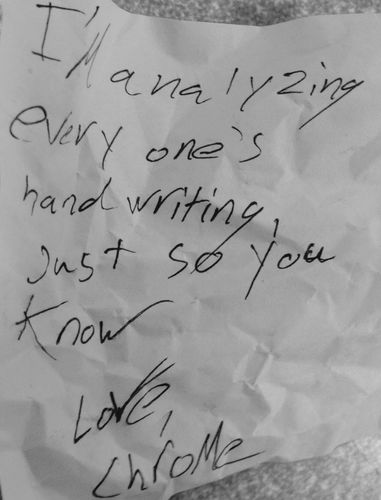 I'm analyzing
every one's
hand writing,
Just so you
know
Love,
Chrome